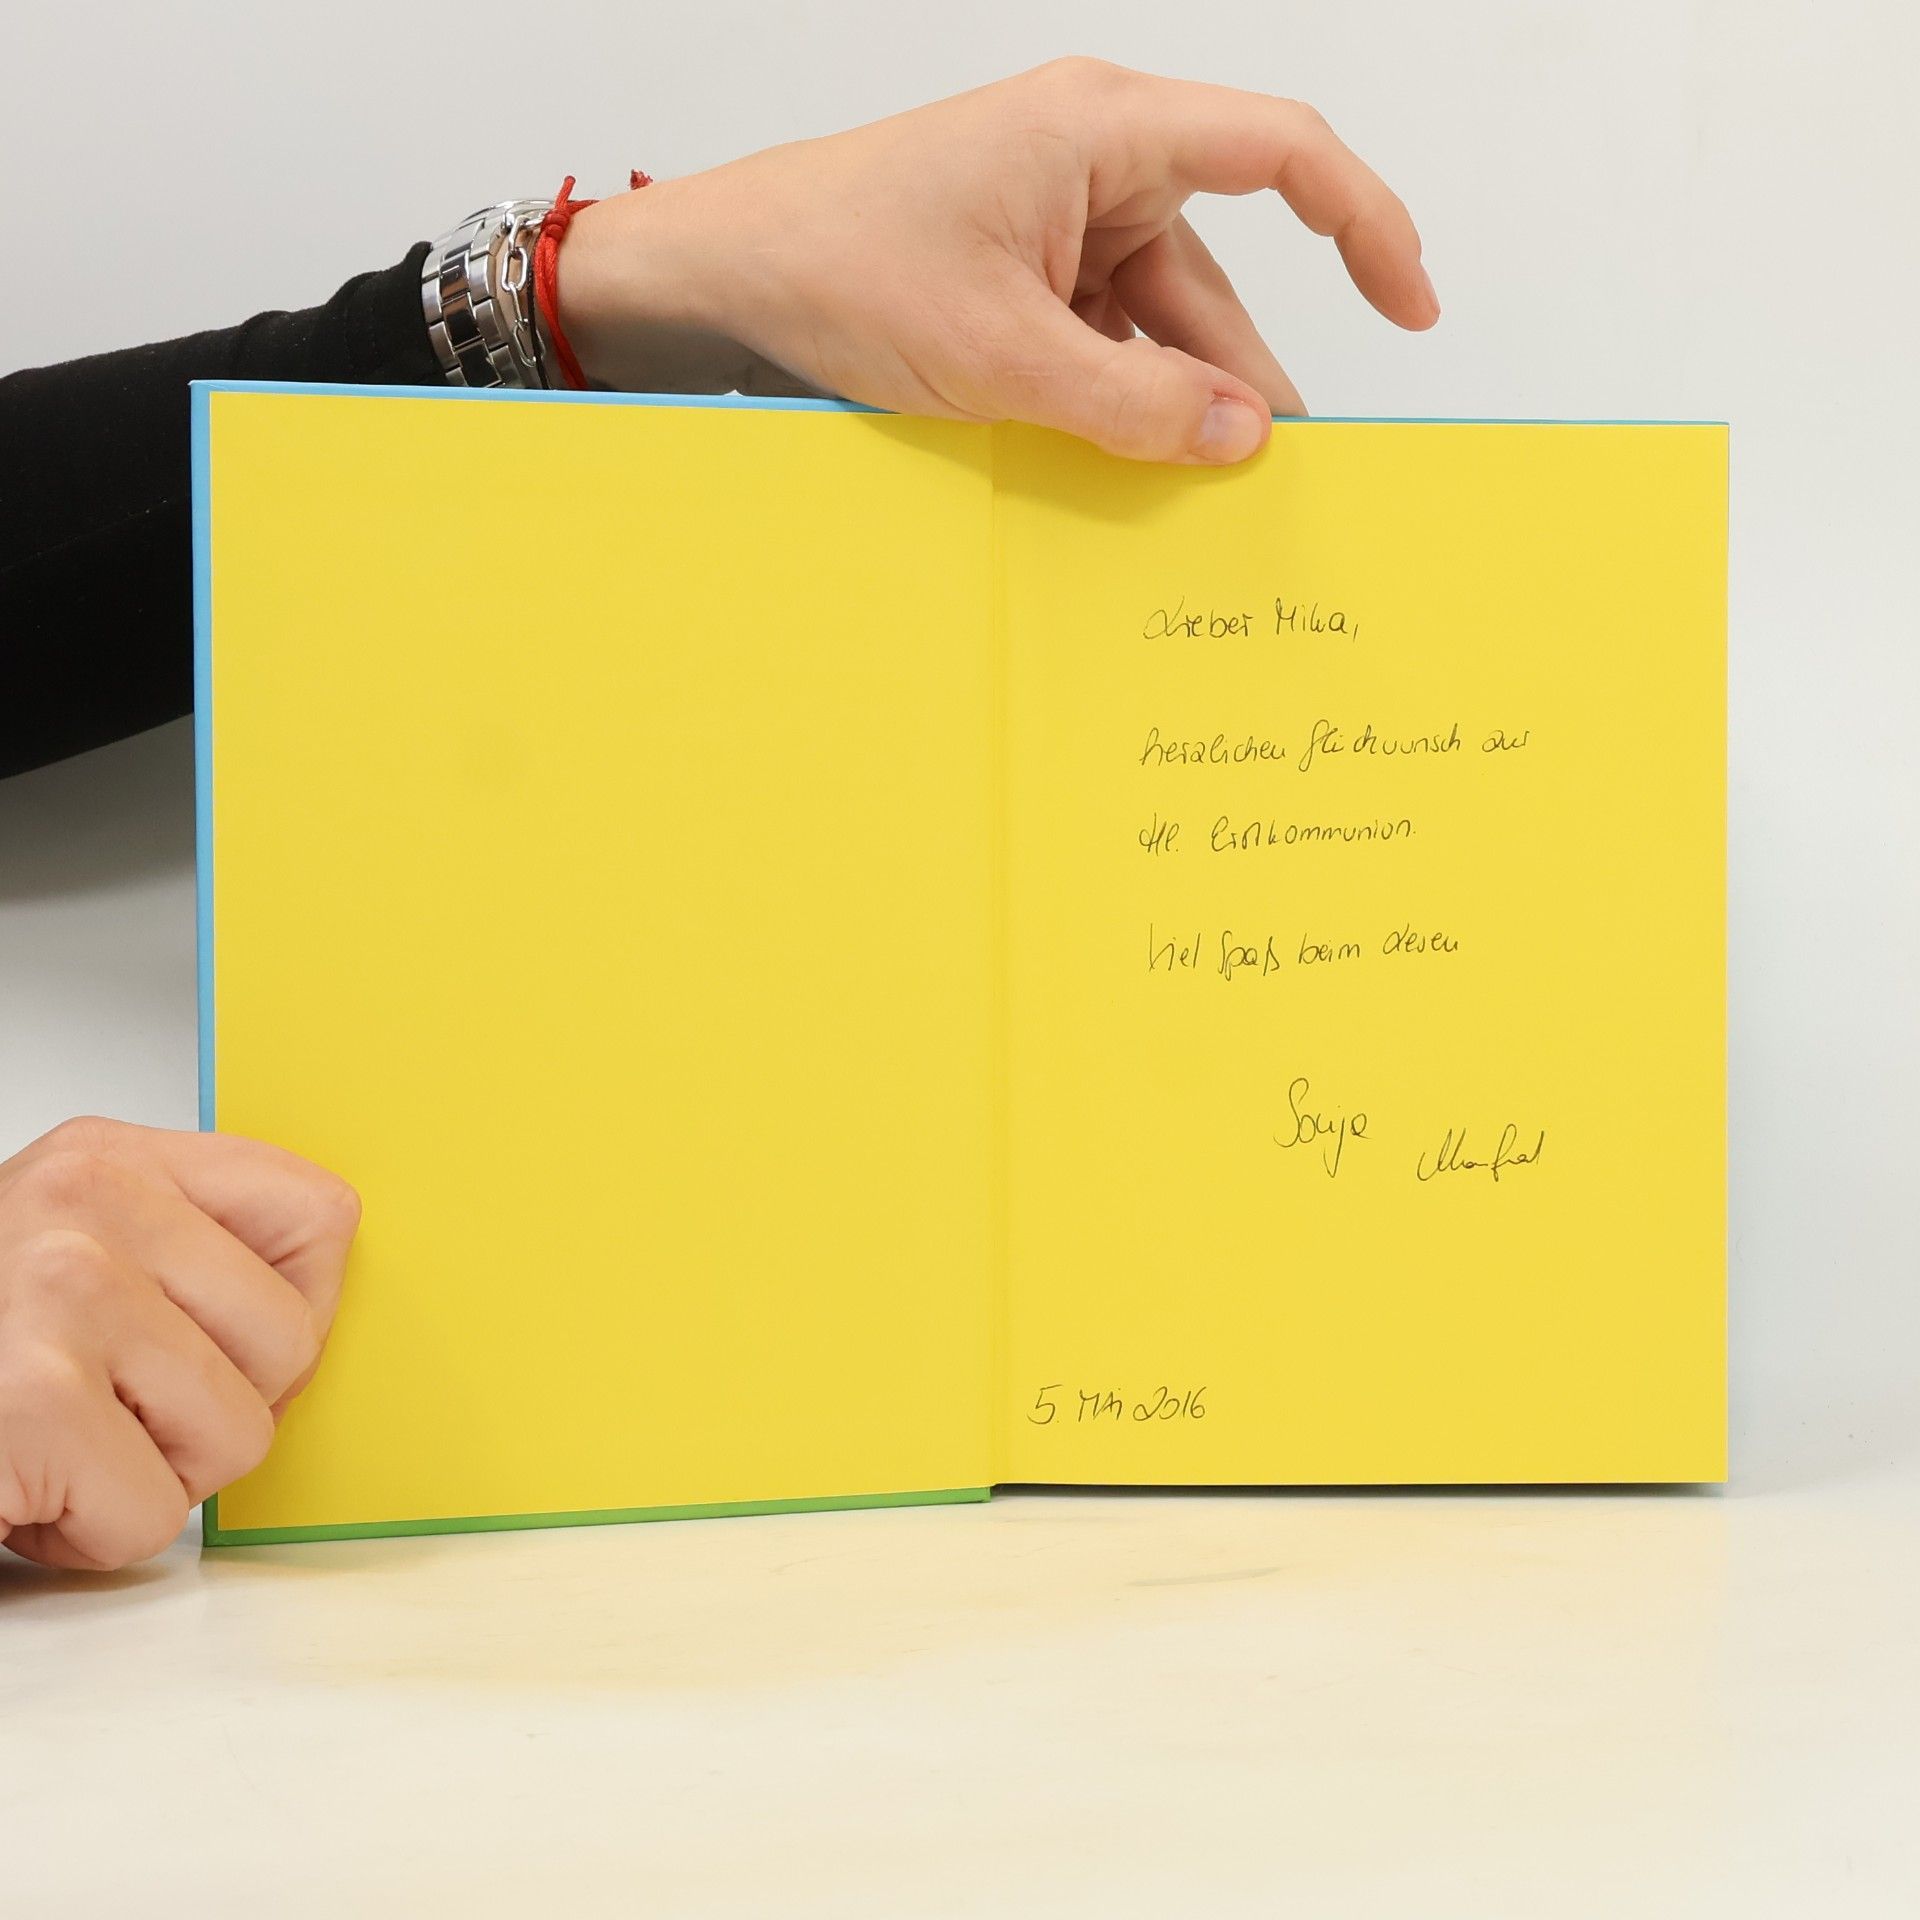 Lieber Mika,
herzlichen Glückwunsch zur
Hl. Erstkommunion.
Viel Spaß beim Lesen
Sonja
Manfred
5. Mai 2016